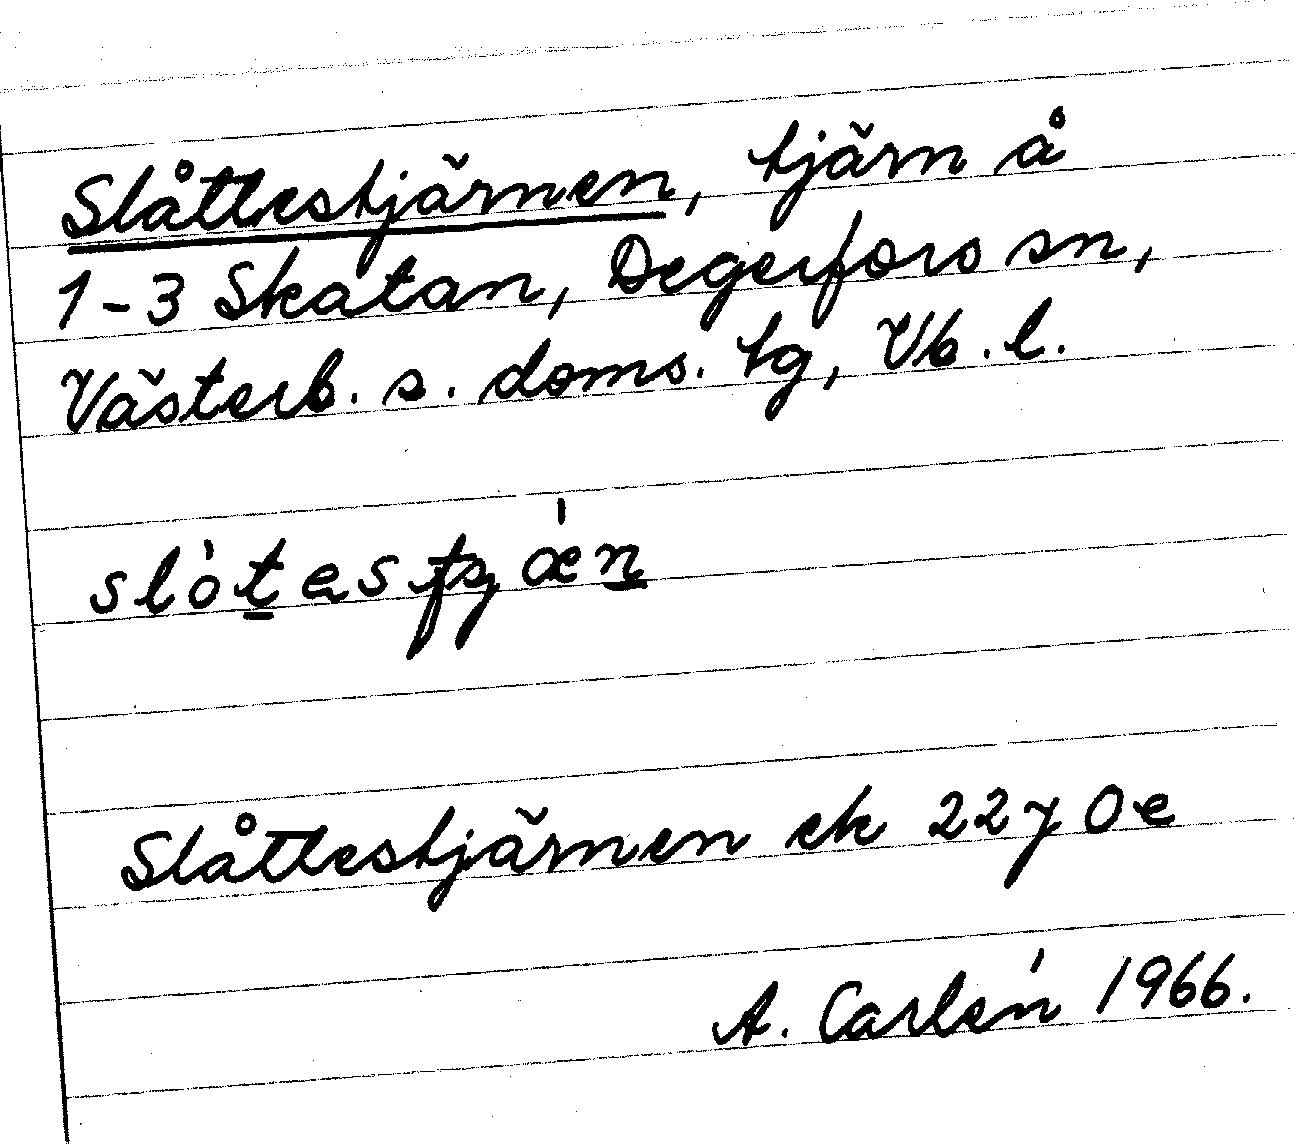 Slåttestjärnen, tjärn å
1-3 Skatan, Degerfors sn,
Västerb. s. doms. tg, Vb. l.
Slåttestjärnen ek 22 y 0 e
A. Carlén 1966.